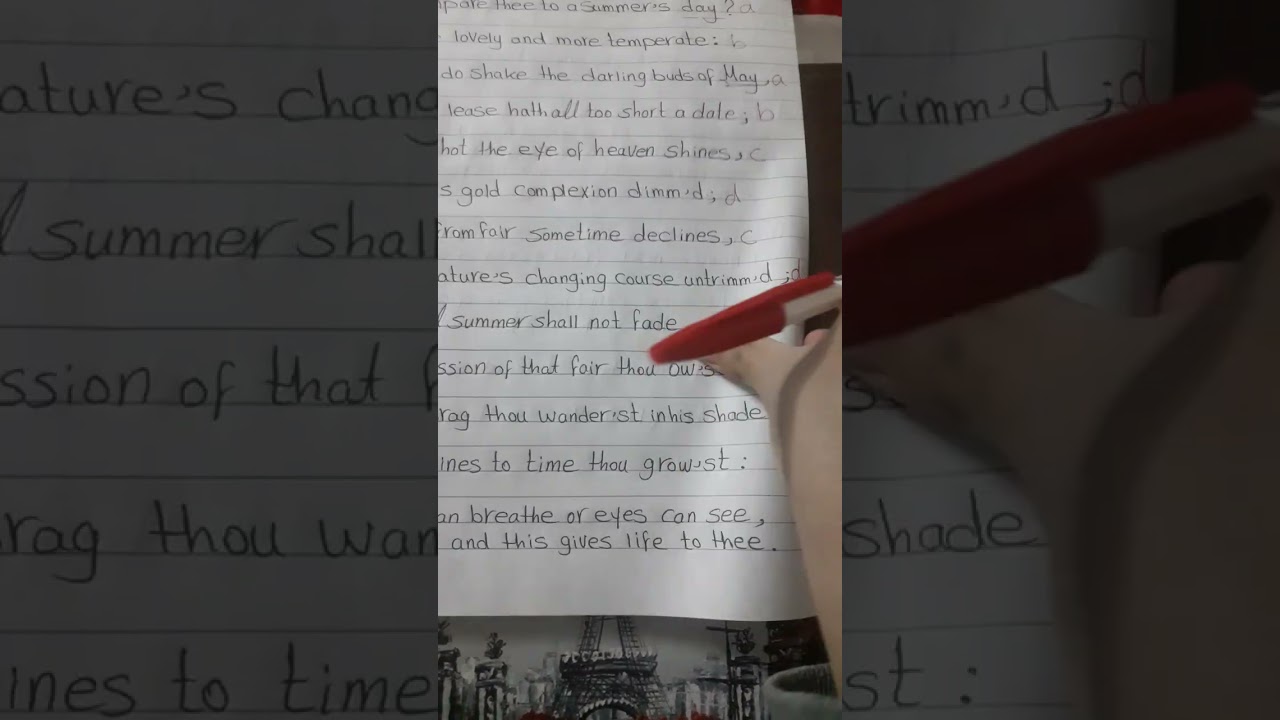 pare thee to a summer's day? a
lovely and more temperate: b
do shake the darling buds of May, a
lease hath all too short a date; b
hot the eye of heaven shines, c
s gold complexion dimm'd; d
from fair sometime declines, c
ature's changing course untrimm'd; d
l summer shall not fade
ssion of that fair thou ow's
rag thou wander'st in his shade
ines to time thou grow'st:
an breathe or eyes can see,
and this gives life to thee.